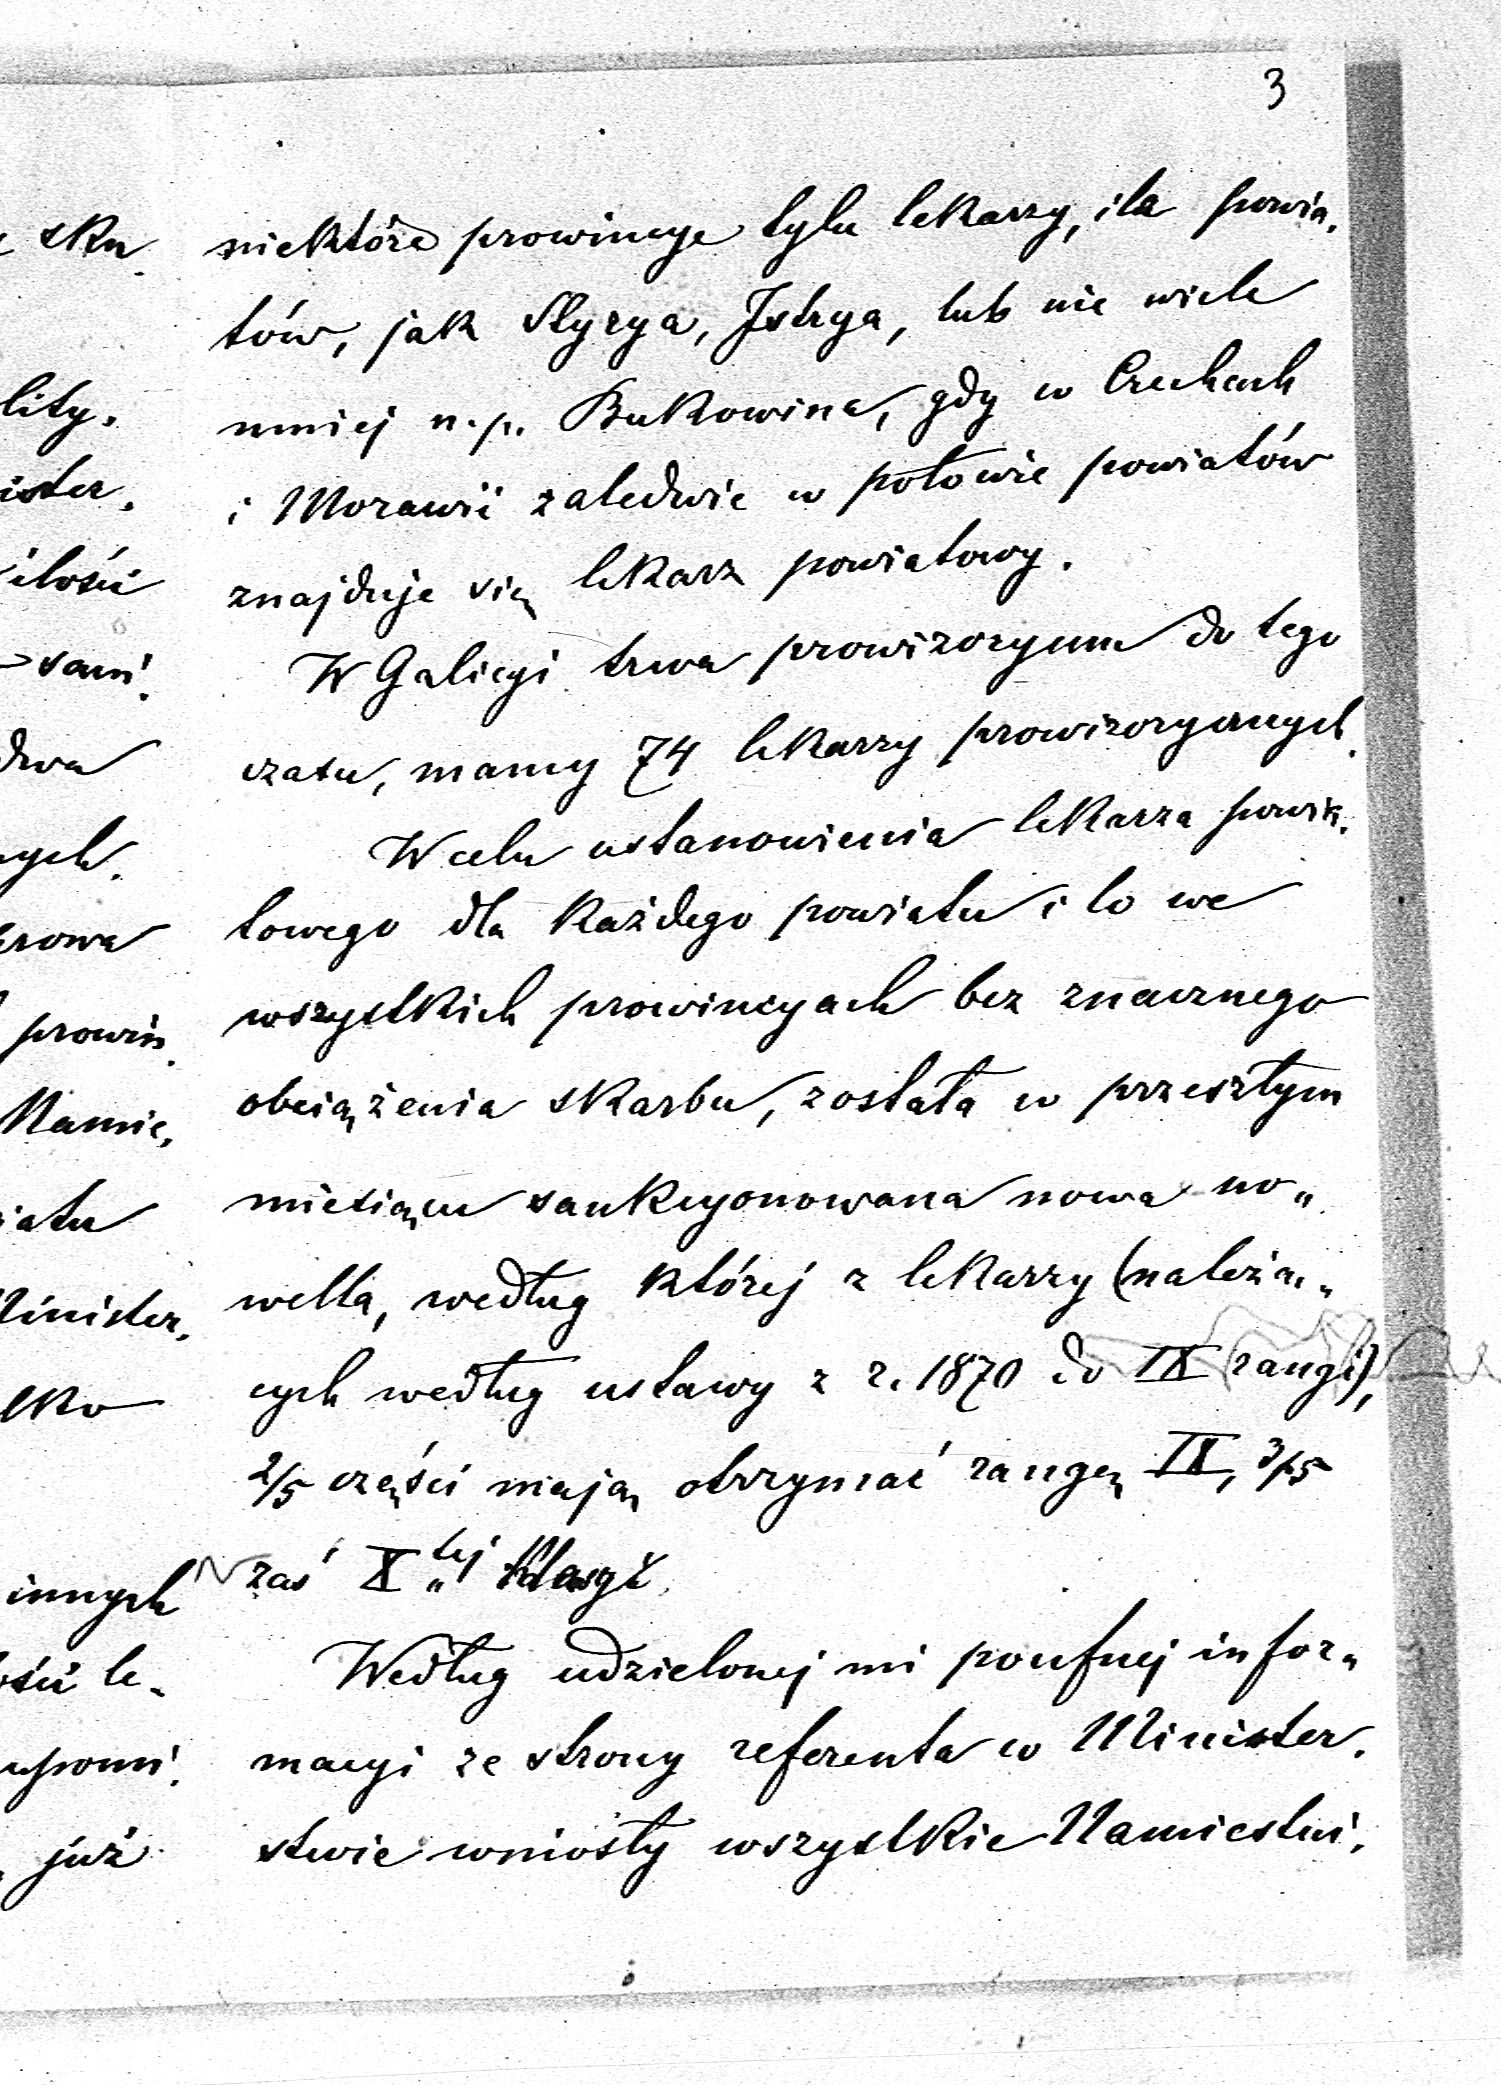 3
niektóre prowincye tylu lekarzy, ile powia„
tów, jak Styrya, Istrya, lub nie wiele
mniej n. p. Bukowina, gdy w Czechach
i Morawii zaledwie w połowie powiatów
znajduje się lekarz powiatowy.
W Galicyi trwa prowizoryum do tego
czasu, mamy 74 lekarzy prowizorycznych.
W celu ustanowienia lekarza powia„
towego dla każdego powiatu i to we
wszystkich prowincyach bez znacznego
obciążenia skarbu, została w przeszłym
miesiącu sankcyonowana nowa no„
wella, według której z lekarzy (należą„
cych według ustawy z r. 1870 do IX rangi),
2/5 części mają otrzymać rangę IX, 3/5
zaś X„tej
Według udzielonej mi poufnej infor„
macyi ze strony referenta w Minister„
stwie wniosły wszystkie Namiestni„
sku
lity„
ister„
ilości
sani„
dwa
nych
prowin„
Namie„
iatu
inister„
lko
innych
ości le„
już